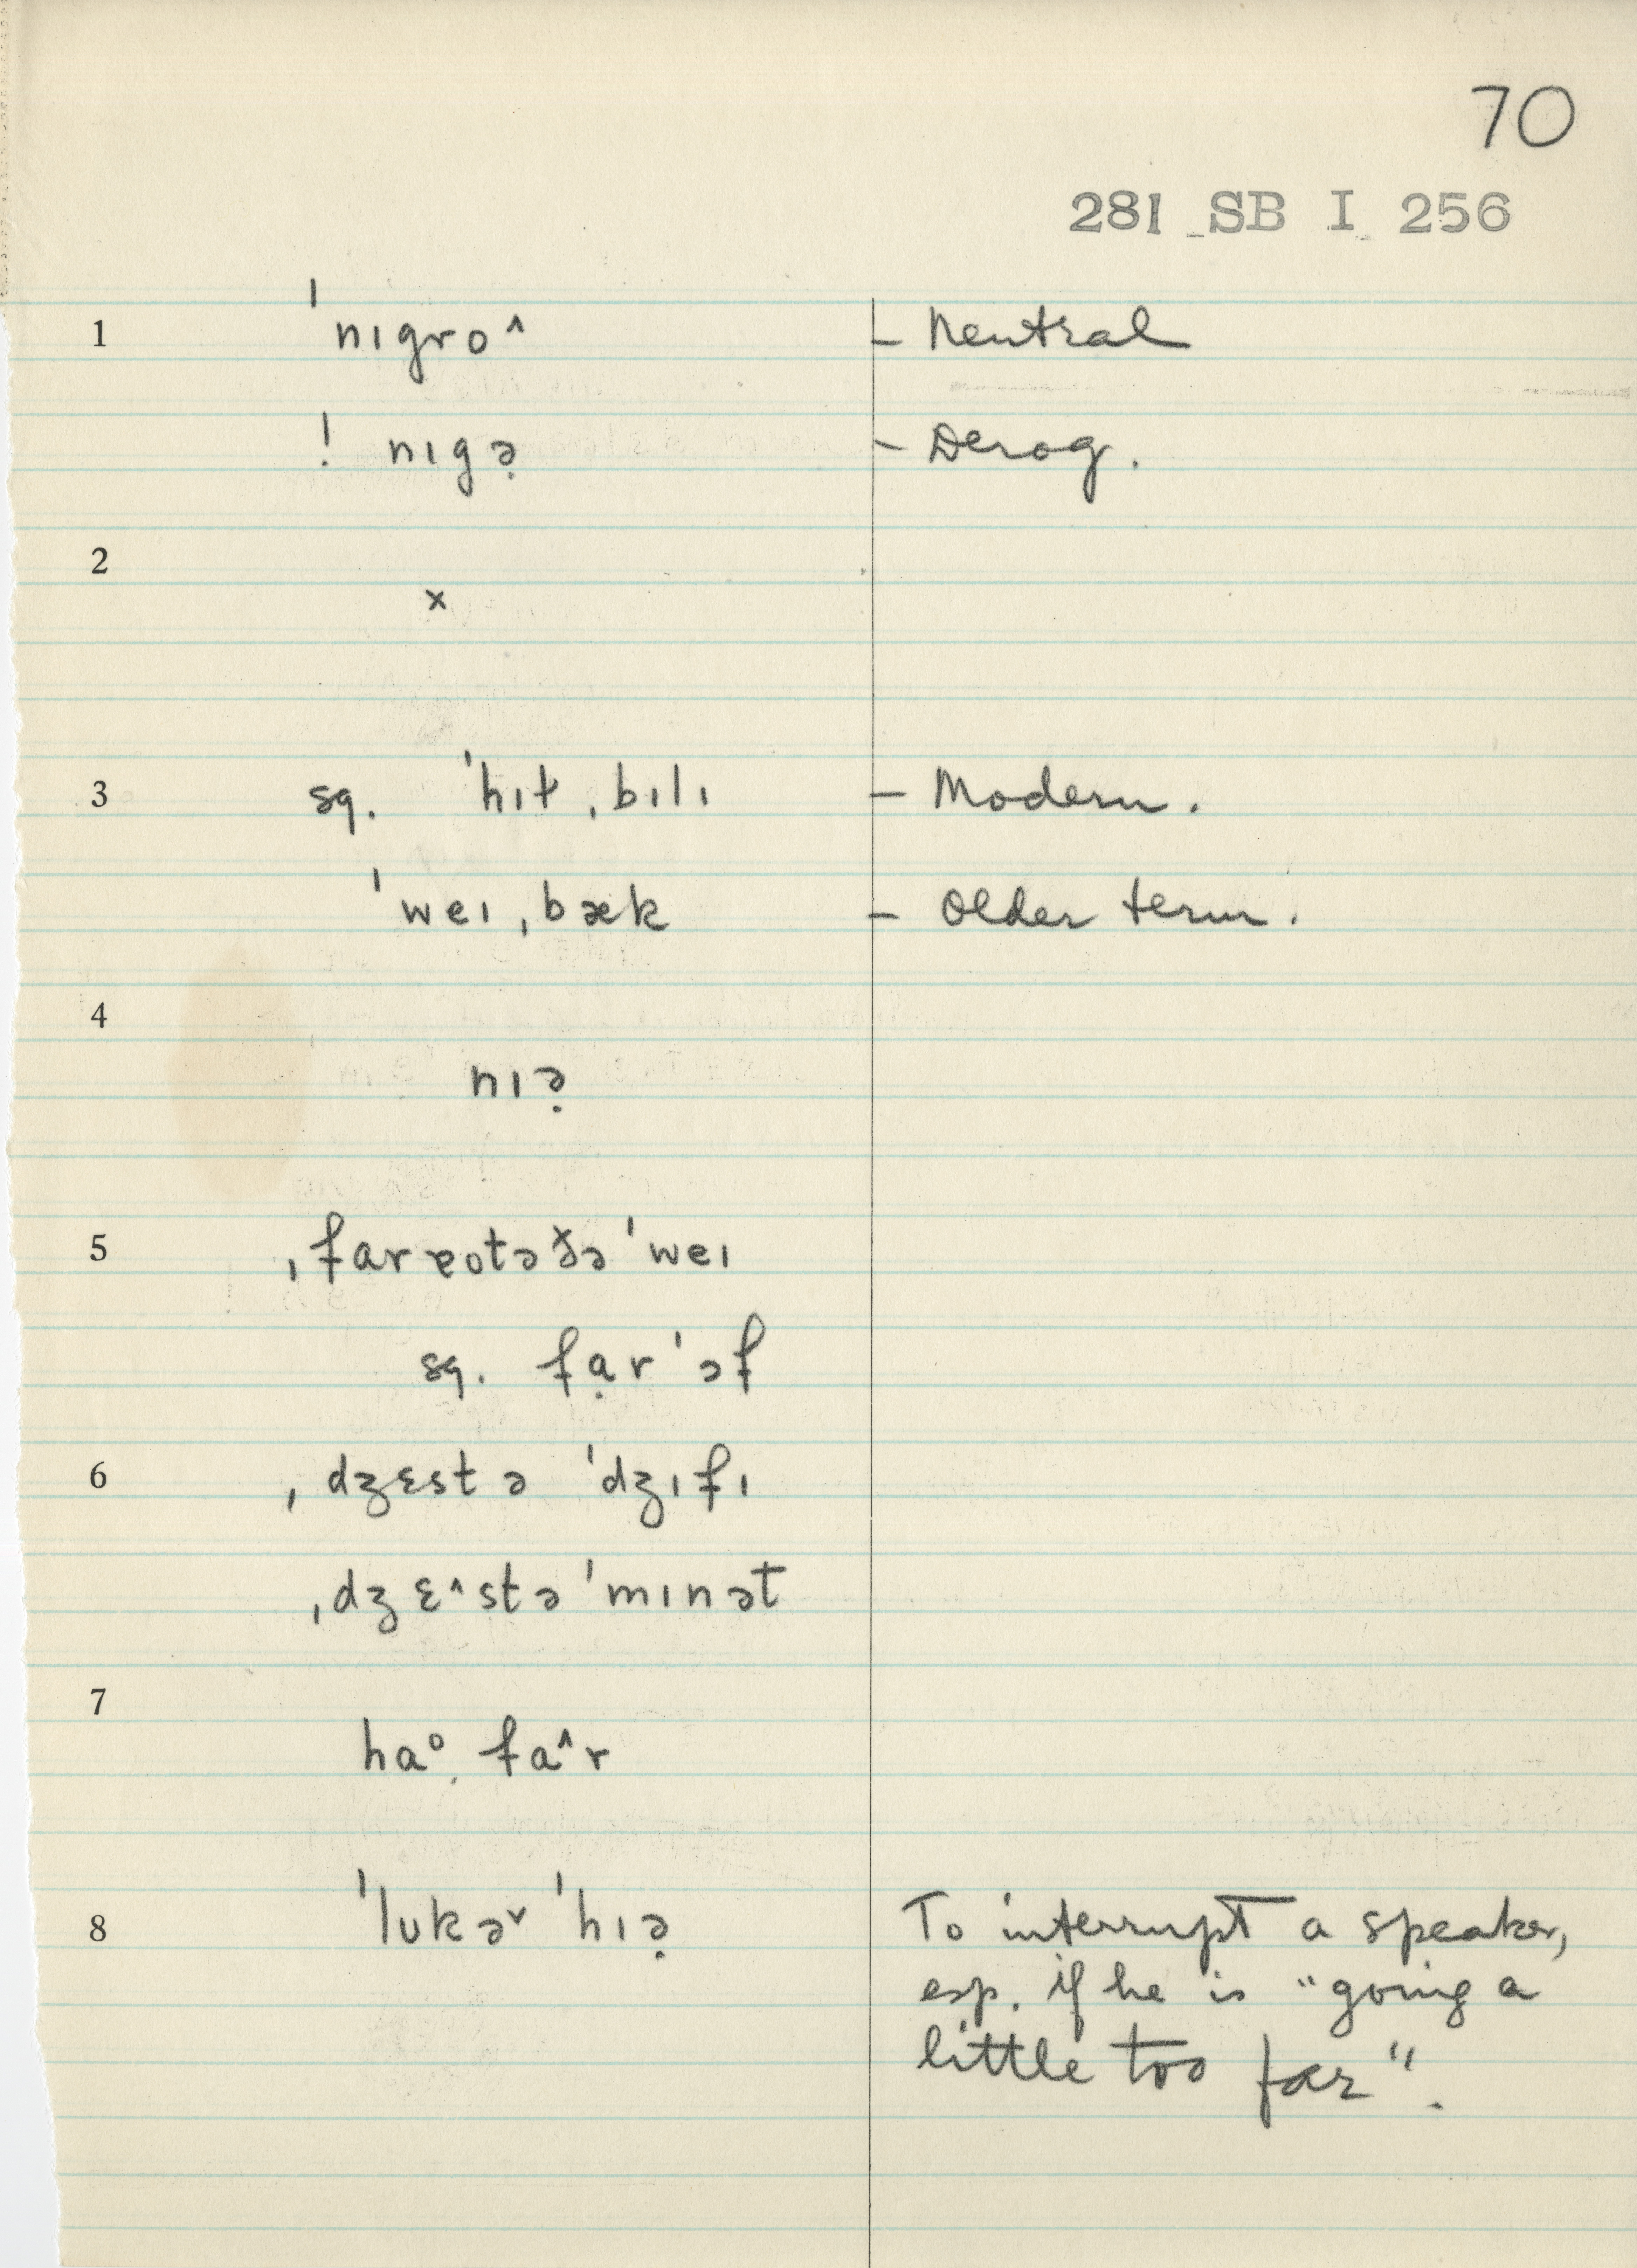 70
281 SB I 256
1 ˈnɪgro^ – Neutral
! nɪgə̣ – Derog.
2
x
3 sq. ˈhɪt ˌbɪlɪ – Modern.
ˈweɪ ˌbæk – Older term.
4
nɪə̣
5 ˌfar ɐotə ðə ˈweɪ
sq. fạr ˈɔf
6 ˌdʒɛst ə ˈdʒɪfɪ
ˌdʒɛ^st ə ˈmɪnət
7
haᵒ̣ fa^r
8 ˈlʊk ə˅ ˈhɪə̣ To interrupt a speaker,
esp. if he is "going a
little too far".